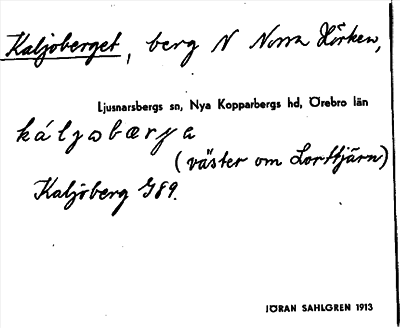 Kaljoberget, berg N Norra Hörken,
Ljusnarsbergs sn, Nya Kopparbergs hd, Örebro län
káljobærja
(väster om Lorttjärn)
Kaljöberg G89.
JÖRAN SAHLGREN 1913